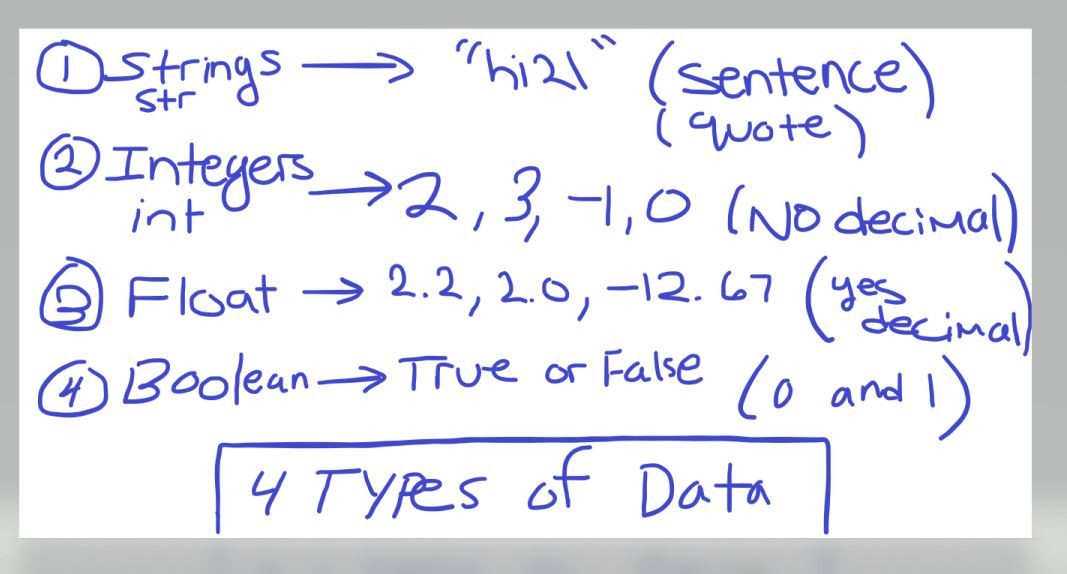 ① Strings → "hi21" (sentence)
str (quote)
② Integers → 2, 3, -1, 0 (No decimal)
int
③ Float → 2.2, 2.0, -12.67 (yes
decimal)
④ Boolean → True or False (0 and 1)
4 Types of Data